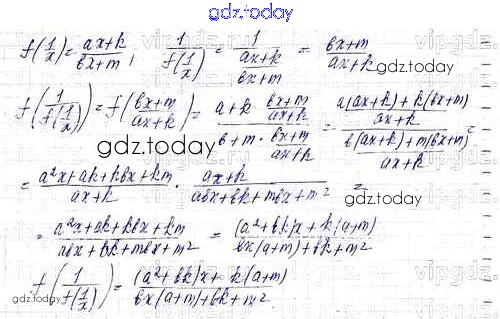 gdz.today
f(1/x) = (ax+k)/(bx+m), 1/f(1/x) = 1/((ax+k)/(bx+m)) = (bx+m)/(ax+k)
gdz.today
f(1/f(1/x)) = f((bx+m)/(ax+k)) = (a+k·(bx+m)/(ax+k))/(b+m·(bx+m)/(ax+k)) = ((a(ax+k)+k(bx+m))/(ax+k))/((b(ax+k)+m(bx+m))/(ax+k)) =
gdz.today
= (a²x+ak+kbx+km)/(ax+k) · (ax+k)/(abx+bk+mbx+m²) =
= (a²x+ak+kbx+km)/(abx+bk+mbx+m²) = ((a²+bk)x+k(a+m))/(bx(a+m)+bk+m²)
f(1/f(1/x)) = ((a²+bk)x+k(a+m))/(bx(a+m)+bk+m²)
gdz.today
gdz.today